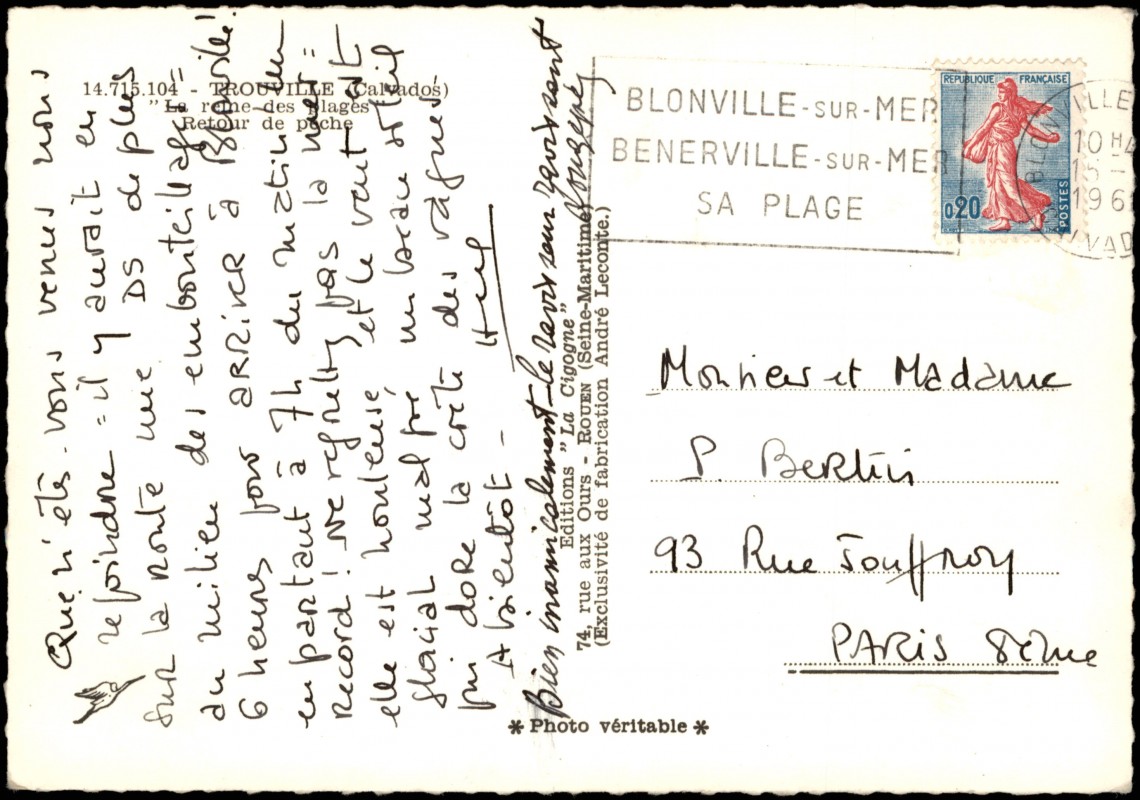 14.715.104 - TROUVILLE (Calvados)
"La reine des plages"
Retour de pêche
Que n'êtes-vous venus nous
rejoindre = il y aurait eu
sur la route une DS de plus
au milieu des embouteillages =
6 heures pour arriver à Blonville!
en partant à 7h du matin un
record! Ne regrettez pas la mer =
elle est houleuse, et le vent est
glacial malgré un beau soleil
qui dore la crête des vagues
A bientôt -
Bien amicalement - le ravisseur ravissant
Editions "La Cigogne"
74, rue aux Ours - ROUEN (Seine-Maritime)
(Exclusivité de fabrication André Lecomte.)
* Photo véritable *
BLONVILLE-SUR-MER
BENERVILLE-SUR-MER
SA PLAGE
REPUBLIQUE FRANÇAISE
0,20
POSTES
BLONVILLE
10 H
15 -
196
VAD
Monsieur et Madame
P. Bertin
93 Rue Jouffroy
PARIS 8ème